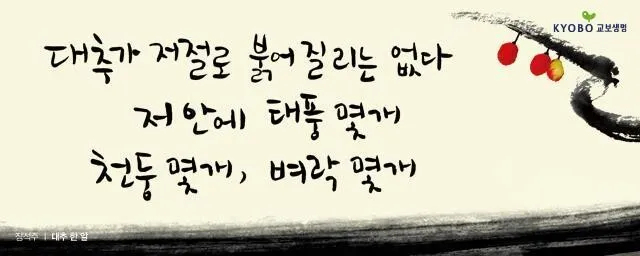 KYOBO 교보생명
대추가 저절로 붉어질리는 없다
저 안에 태풍 몇개
천둥 몇개, 벼락 몇개
장석주 | 대추 한 알